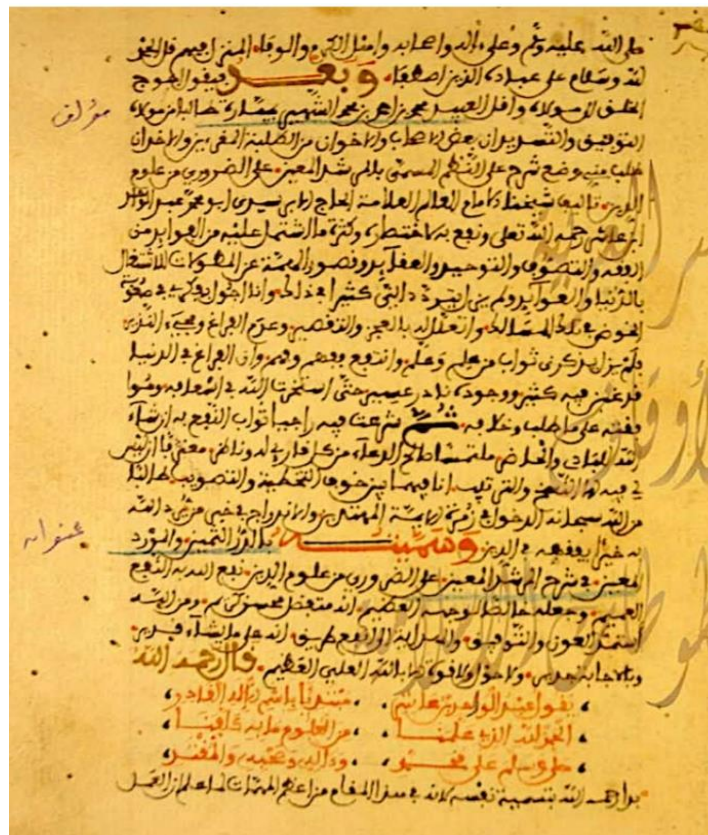 صلى الله عليه وسلم وعلى اله واصحابه واهل الكرم والوفا المنزل فيهم قل الحمد
لله وسلام على عباده الذين اصطفى وبعد فيقول احوج
الخلق الى مولاه واقل العبيد محمد بن احمد بن محمد الشهير بميارة طالبا من مولاه
مؤلف
التوفيق والتسديد ان بعض الاصحاب والاخوان من الطلبة المعتبرين والاخدان
طلب مني وضع شرح على النظم المسمى بالمرشد المعين على الضروري من علوم
الدين تاليف شيخنا الامام العالم العلامة الحاج الابر سيدي ابو محمد عبد الواحد
ابن عاشر رحمه الله تعلى ونفع به لاختصاره وكثرة ما اشتمل عليه من الفوايد من
الفقه والتصوف والتوحيد والعقايد وقصور الهمة عن المطولات للاشتغال
بالدنيا والعوايد ولم يزل يتردد الي كثيرا في ذلك وانا اجول بفكري في صعوبة
الخوض في تلك المسالك واتعلل له بالعجز والتقصير وعدم الفراغ ومحبة التستر
فلم يزل يذكرني ثواب من علم وعلم وانتفع بفهم وفهم وان الفراغ في الدنيا
فيه كثير ووجوده نادر عسير حتى استخرت الله في اسعافه وموا
فقته على ما طلب وخلافه ثم شرعت فيه راجيا ثواب النفع به ان شاء
الله للبادي والحاضر ملتمسا صالح الدعاء من كل قاري له وناظر
في فيه انا فيهما بين خوف التخطية والتصويب طالبا
من الله سبحانه الدخول في زمرة الايمة المهتدين والاندراج في خبر من يرد الله
به خيرا يفقهه في الدين وسميته بالدر الثمين والمورد
عنوانه
المعين في شرح المرشد المعين على الضروري من علوم الدين نفع الله به النفع
العميم وجعله خالصا لوجهه العظيم انه متفضل محسن كريم ومن الله
استمد العون والتوفيق والهداية الى انفع طريق انه على ما يشاء قدير
وبالاجابة جدير ولا حول ولا قوة الا بالله العلي العظيم قال رحمه الله
يقول عبد الواحد بن عاشر مبتديا باسم الاله القادر
الحمد لله الذي علمنا من العلوم ما به كلفنا
صلى وسلم على محمد واله وصحبه والمقتدي
بدا رحمه الله بتسمية نفسه لانه في هذا المقام من اعظم المهمات لما علم ان العمل